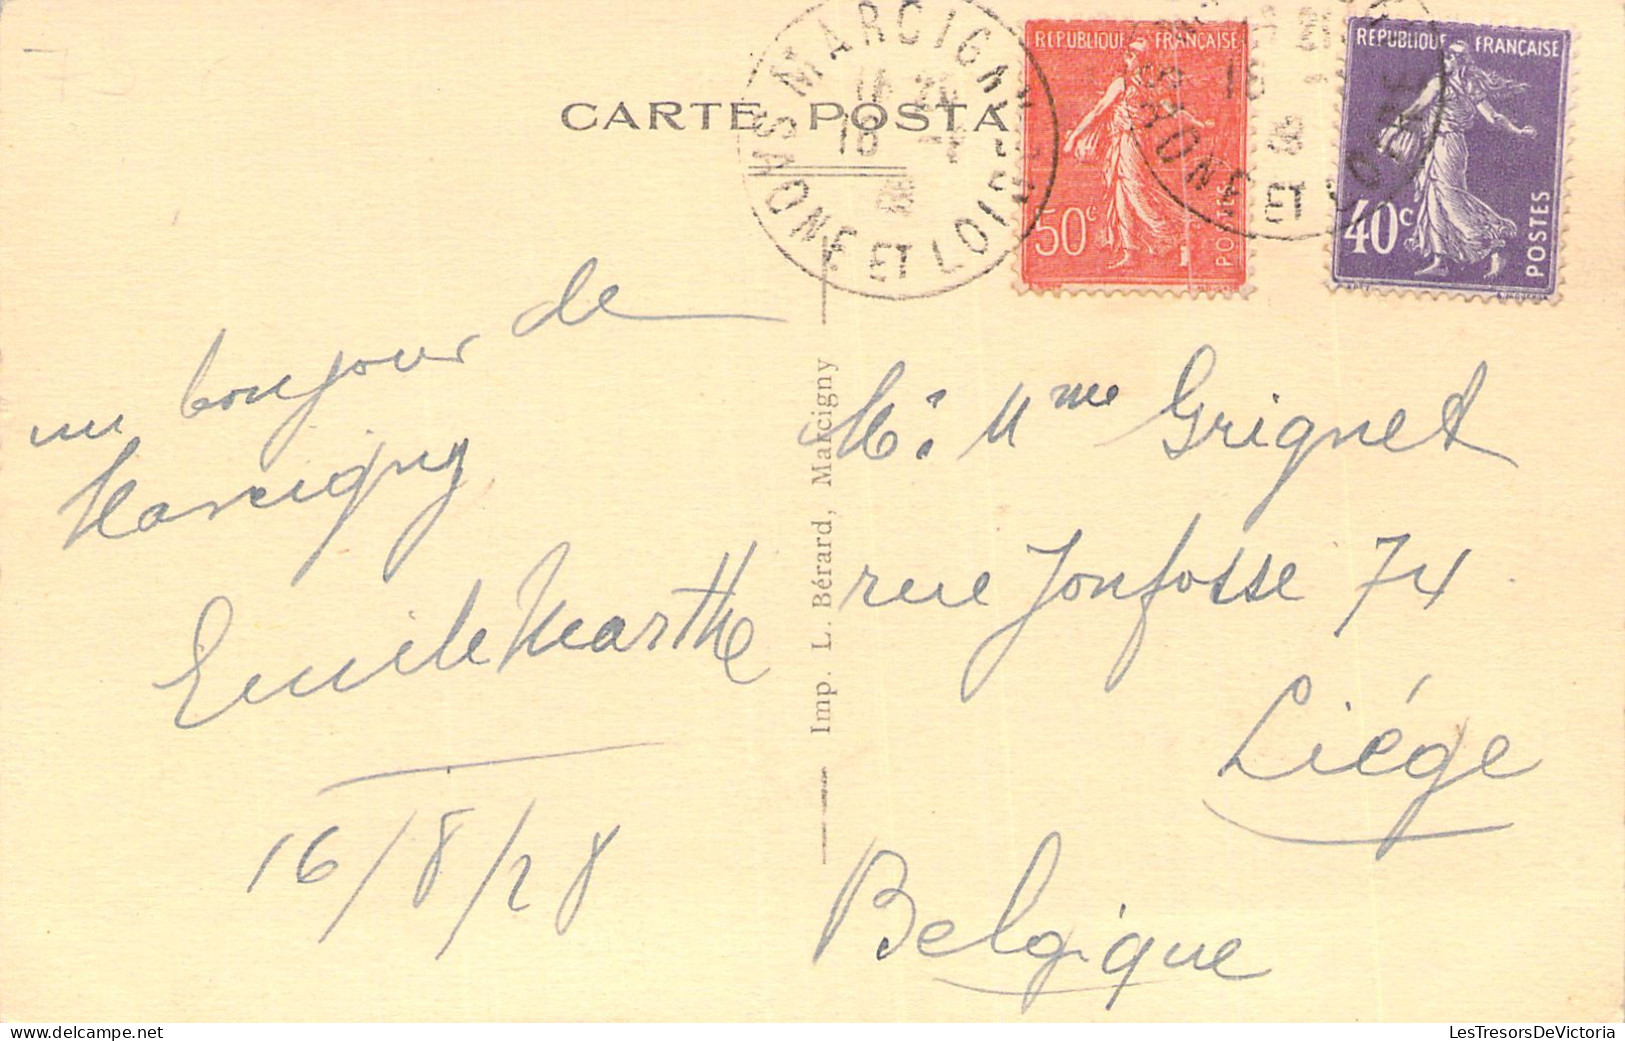 CARTE POSTA
MARCIGNY
SAONE ET LOIRE
16 20
18 -8
28
REPUBLIQUE FRANÇAISE
50c
POSTES
REPUBLIQUE FRANÇAISE
40c
POSTES
un bonjour de
Marcigny
Emile Marthe
16/8/28
Imp. L. Bérard, Marcigny
M. Mme Grignet
rue Jonfosse 74
Liége
Belgique
LesTresorsDeVictoria